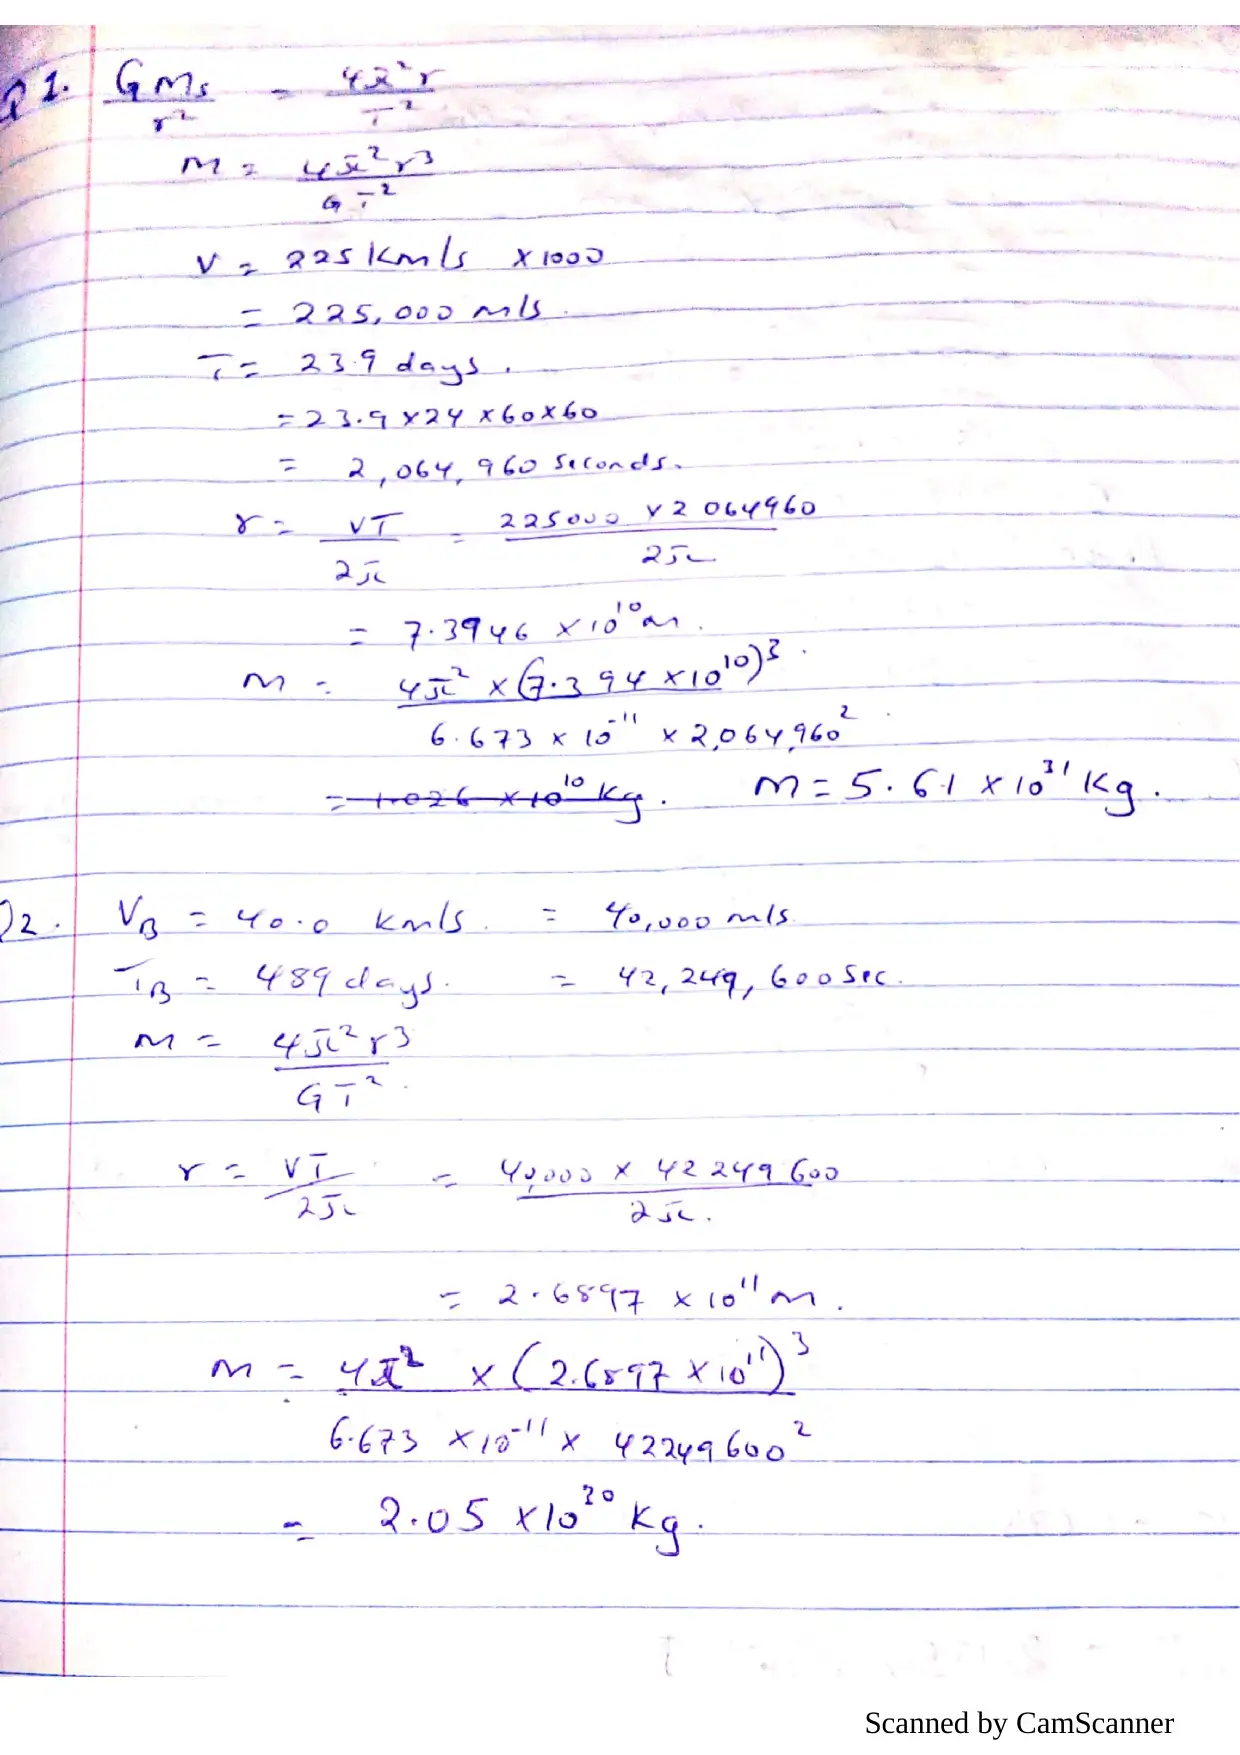 Q1. GMs/r² = 4π²r/T²
M = 4π²r³/GT²
V = 225 Km/s × 1000
= 225,000 m/s.
T = 23.9 days.
= 23.9 × 24 × 60 × 60
= 2,064,960 seconds.
r = VT/2π = 225000 × 2064960/2π
= 7.3946 × 10¹⁰ m.
M = 4π² × (7.394 × 10¹⁰)³/6.673 × 10⁻¹¹ × 2,064,960²
= 1.026 × 10¹⁰ Kg. M = 5.61 × 10³¹ Kg.
Q2. VB = 40.0 Km/s. = 40,000 m/s.
TB = 489 days. = 42,249,600 Sec.
M = 4π²r³/GT².
r = VT/2π = 40,000 × 42249600/2π.
= 2.6897 × 10¹¹ m.
M = 4π² × (2.6897 × 10¹¹)³/6.673 × 10⁻¹¹ × 42249600²
= 2.05 × 10³⁰ Kg.
Scanned by CamScanner